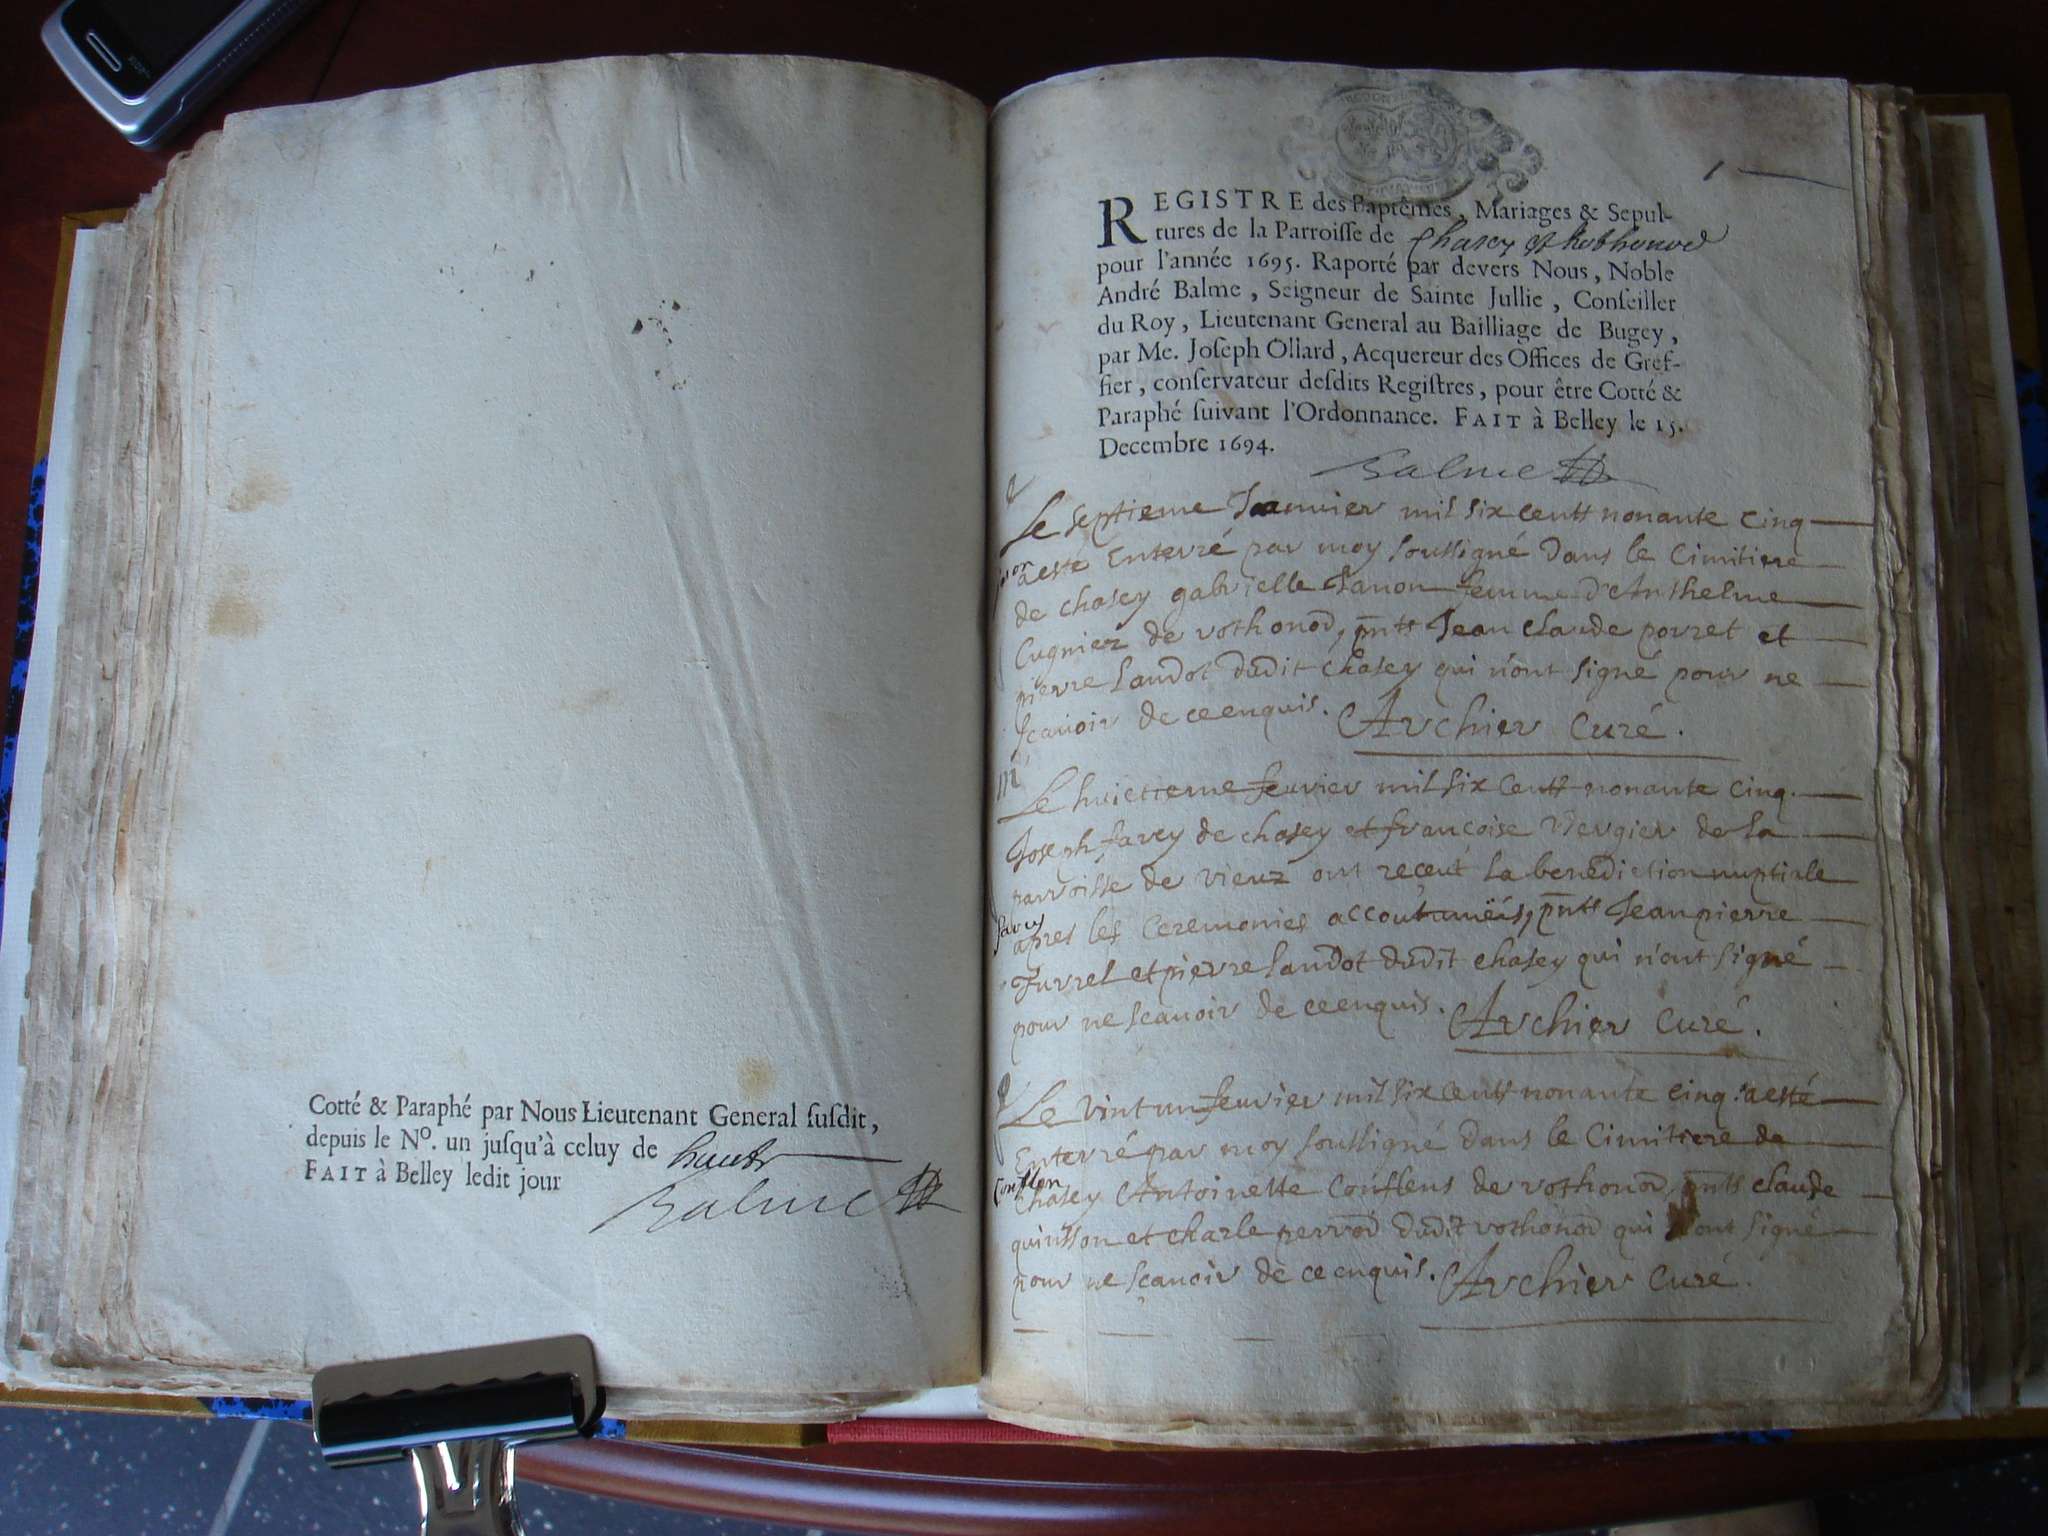 Cotté & Paraphé par Nous Lieutenant General susdit,
depuis le No. un jusqu'à celuy de huit
FAIT à Belley ledit jour
Balme
1
REGISTRE des Baptêmes, Mariages & Sepul-
tures de la Parroisse de Chasey et Rothonod
pour l'année 1695. Raporté par devers Nous, Noble
André Balme, Seigneur de Sainte Jullie, Conseiller
du Roy, Lieutenant General au Bailliage de Bugey,
par Me. Joseph Ollard, Acquereur des Offices de Gref-
fier, conservateur desdits Registres, pour être Cotté &
Paraphé suivant l'Ordonnance. FAIT à Belley le 15.
Decembre 1694.
Balme
Le septieme Januier mil six centt nonante cinq
aesté Enterré par moy soussigné dans le Cimitiere
de chasey gabrielle Janon femme d'Anthelme
Cugnier de rothonod, pntt Jean claude porret et
pierre Landot dudit chasey qui n'ont signé pour ne
scauoir de ce enquis. Archier Curé.
M
Le huictieme feurier mil six Centt nonante cinq.
Joseph favey de chasey et francoise Vergier de la
parroisse de vieuz ont reçeut la benediction nuptiale
Favey
apres les Ceremonies accoutumëés, pntt Jean pierre
Jurrel et pierre Landot dudit chasey qui n'ont signé
pour ne scauoir de ce enquis. Archier Curé.
Le vint un feurier mil six Centt nonante cinq. aesté
Enterré par moy soussigné dans le Cimitiere de
Conflen
chasey Antoinette Conflens de rothonod pntt claude
quinsson et charle perrod dudit rothonod qui n'ont signé
pour ne sçauoir de ce enquis. Archier Curé.